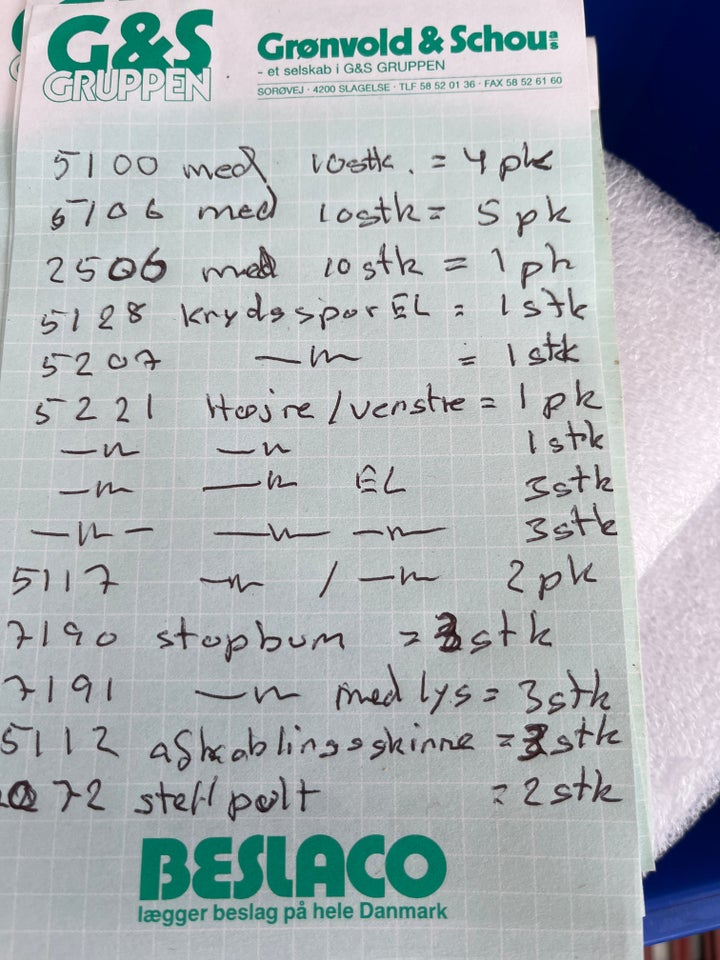 G&S
GRUPPEN
Grønvold & Schou a/s
- et selskab i G&S GRUPPEN
SORØVEJ · 4200 SLAGELSE · TLF 58 52 01 36 · FAX 58 52 61 60
5100 med 10stk. = 4 pk
5106 med 10stk = 5 pk
2506 med 10stk = 1 pk
5128 krydsspor EL = 1 stk
5207 —〃— = 1 stk
5221 Højre/venstre = 1 pk
—〃— —〃— 1stk
—〃— —〃— EL 3stk
—〃— —〃— —〃— 3stk
5117 —〃— / —〃— 2 pk
7190 stopbum = stk
7191 —〃— med lys = 3stk
5112 afkoblingsskinne = stk
72 = 2 stk
BESLACO
lægger beslag på hele Danmark